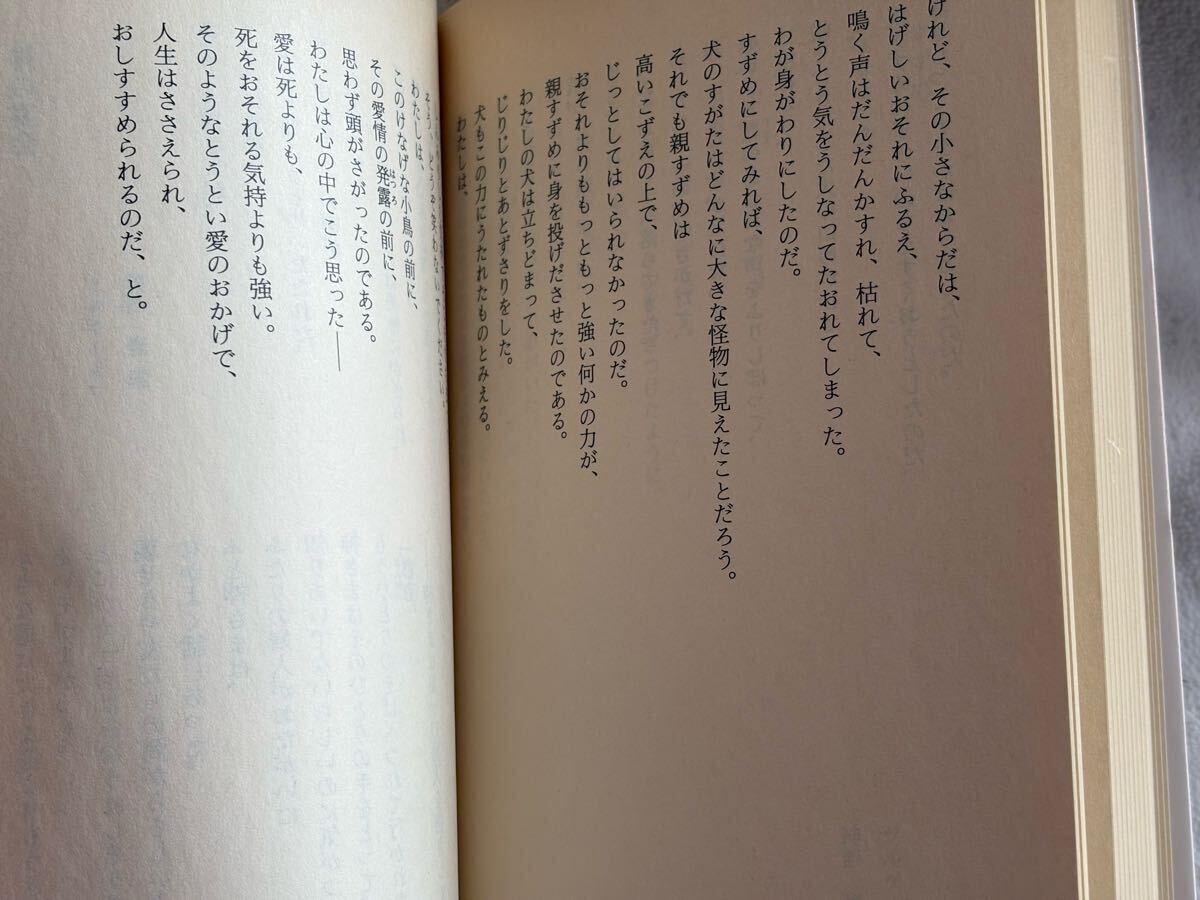 けれど、その小さなからだは、
はげしいおそれにふるえ、
鳴く声はだんだんかすれ、枯れて、
とうとう気をうしなってたおれてしまった。
わが身がわりにしたのだ。
すずめにしてみれば、
犬のすがたはどんなに大きな怪物に見えたことだろう。
それでも親すずめは
高いこずえの上で、
じっとしてはいられなかったのだ。
おそれよりももっともっと強い何かの力が、
親すずめに身を投げださせたのである。
わたしの犬は立ちどまって、
じりじりとあとずさりをした。
犬もこの力にうたれたものとみえる。
わたしは、
そう、どうぞ笑わないでください。
わたしは、
このけなげな小鳥の前に、
その愛情の発露の前に、
思わず頭がさがったのである。
わたしは心の中でこう思った――
愛は死よりも、
死をおそれる気持よりも強い。
そのようなとうとい愛のおかげで、
人生はささえられ、
おしすすめられるのだ、と。